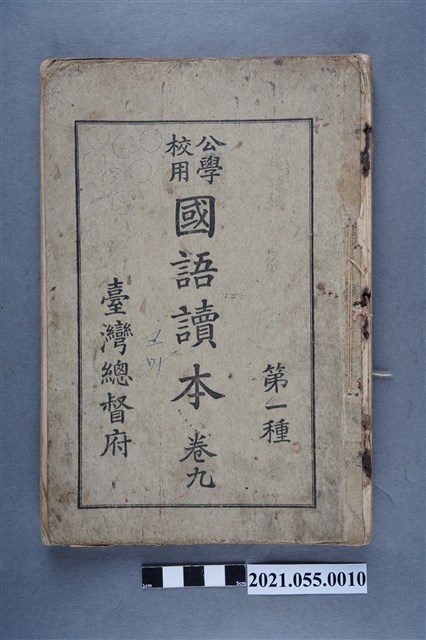 第一種
公學
校用
國語讀本 卷九
臺灣總督府
2021.055.0010